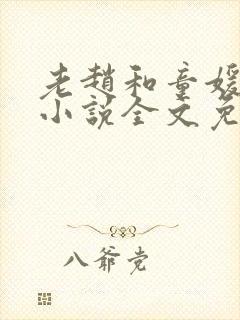 老趙和童媛
小說全文免
八爺党